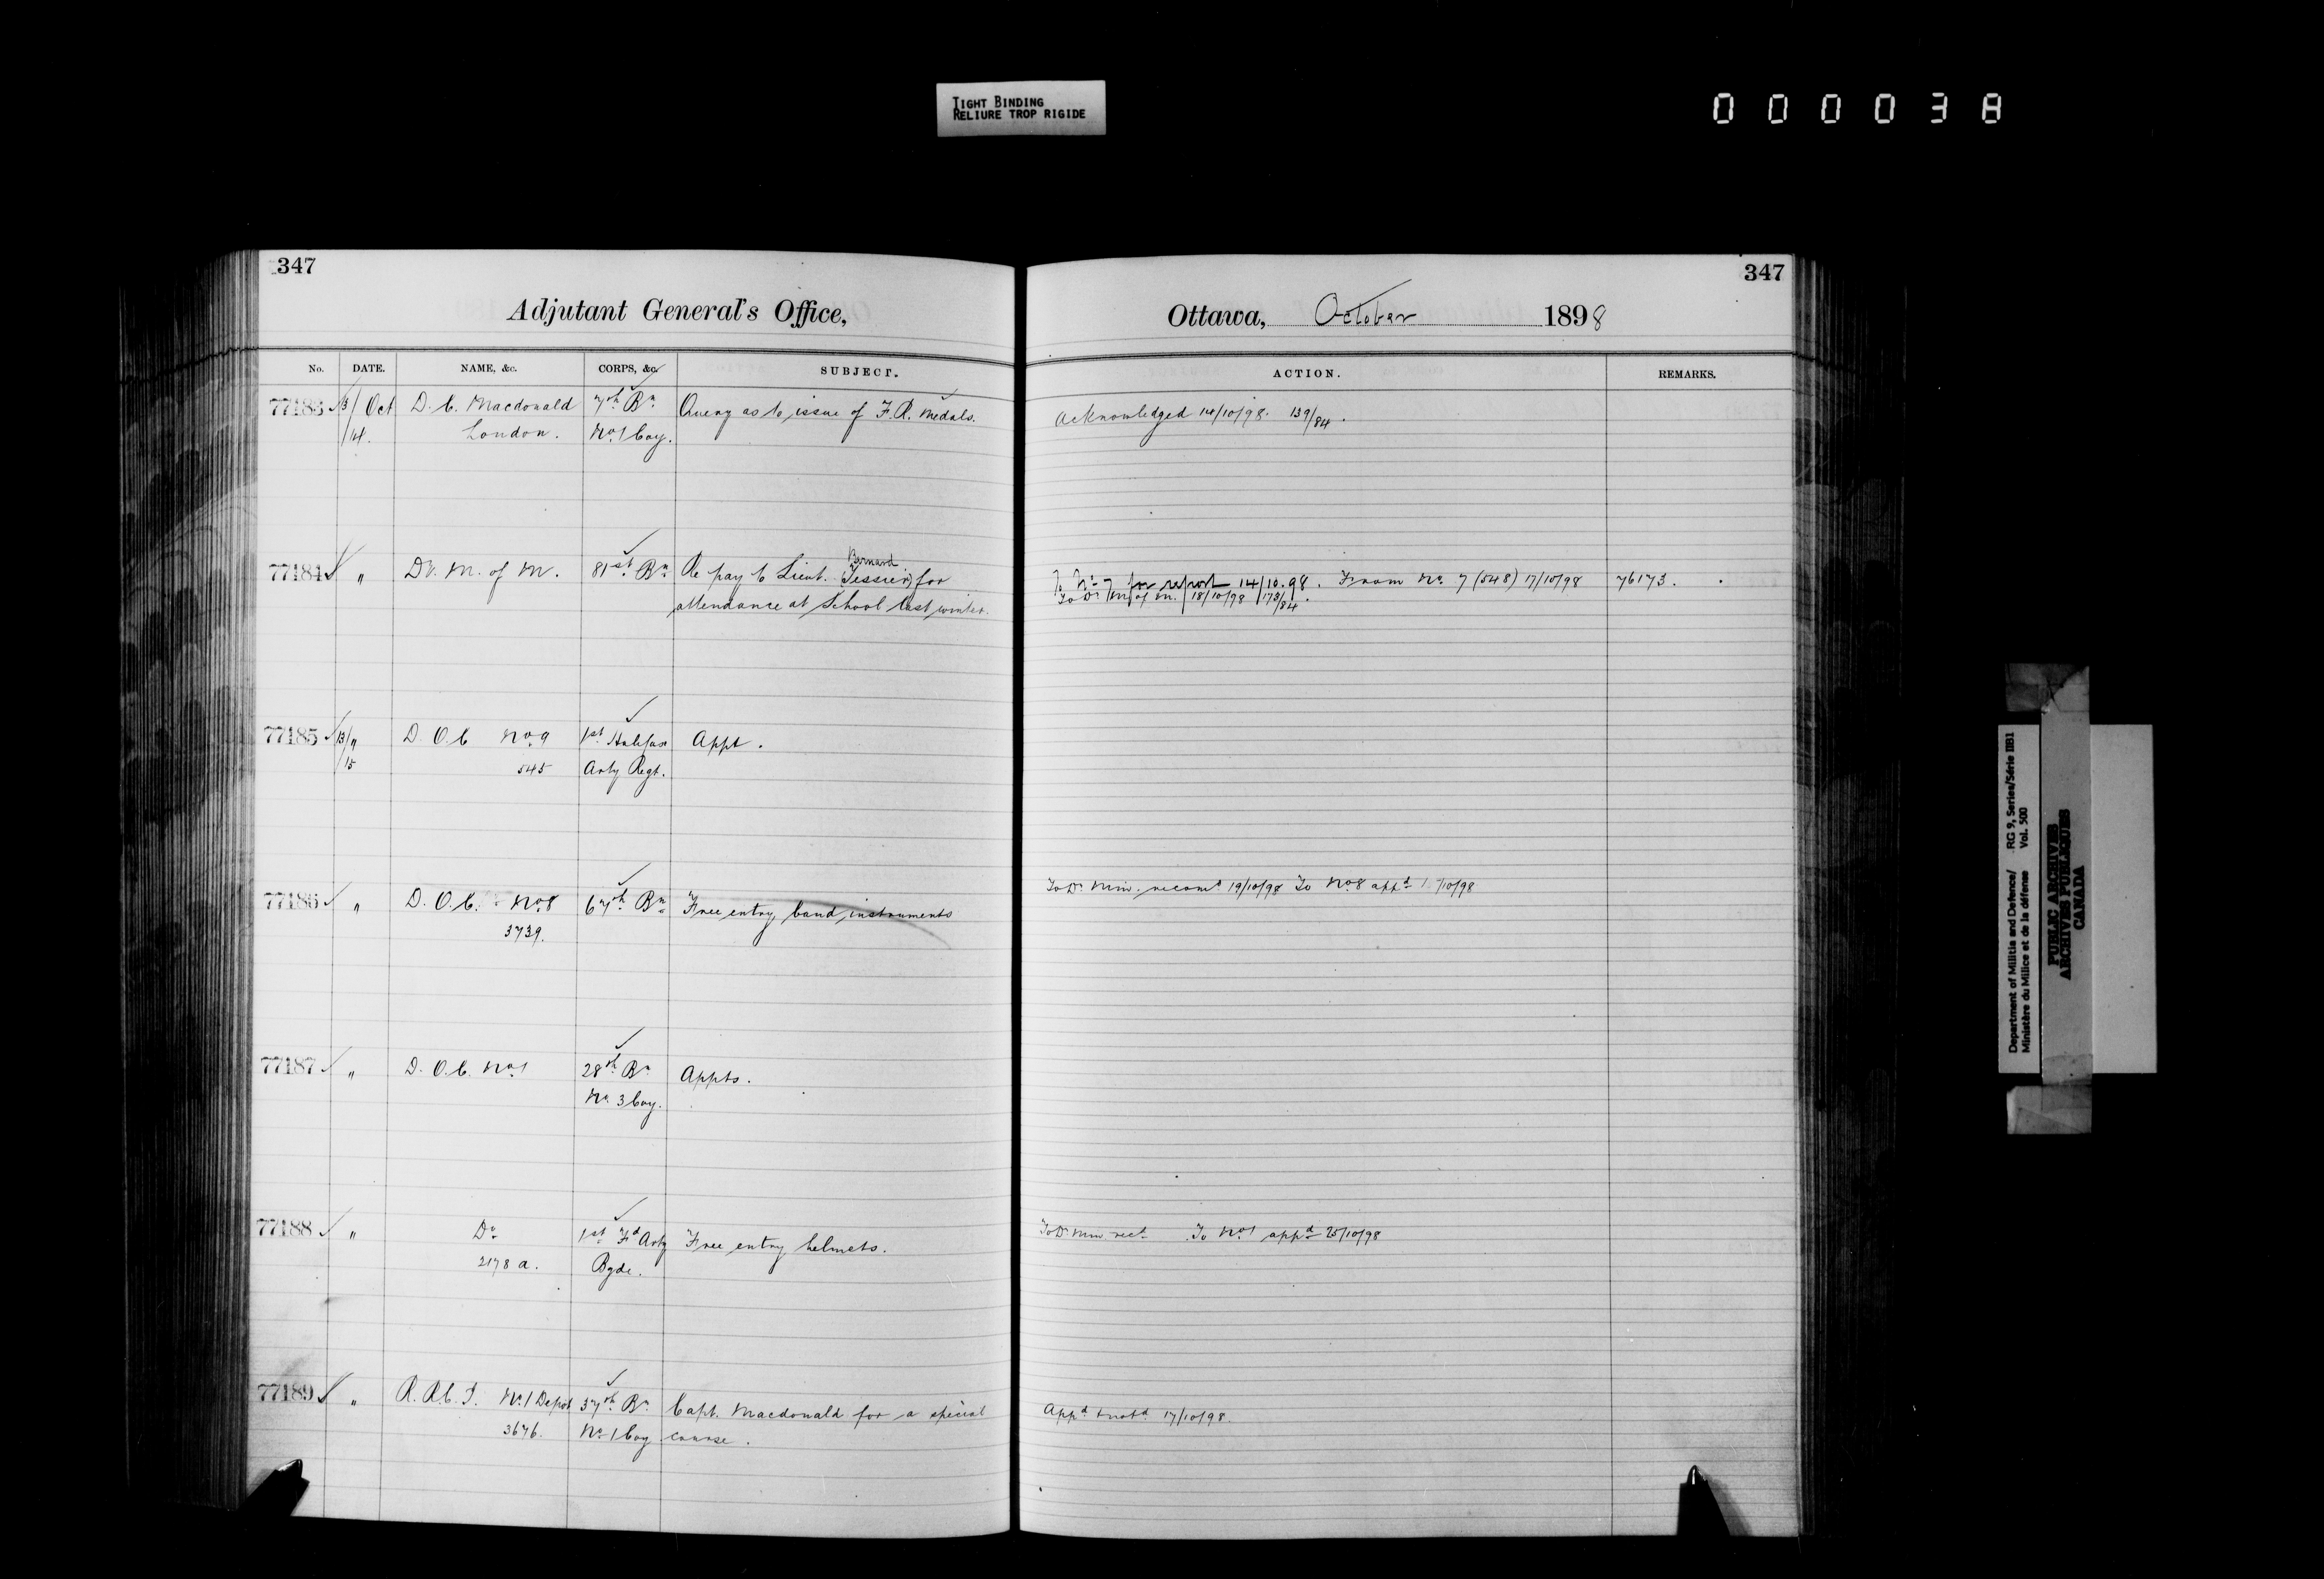 TIGHT BINDING
RELIURE TROP RIGIDE
000038
347
Adjutant General's Office,
No. DATE. NAME, &c. CORPS, &c. SUBJECT.
77183 13/14 Oct D. C. Macdonald 7th Bn Query as to issue of F.R. Medals.
London. No 1 Coy.
77184 " Dr. M. of M. 81st Bn Re pay to Lieut. (Bernard Tessier) for
attendance at School last winter.
77185 13/15 " D.O.C. No 9 1st Halifax Appt.
545 Arty Regt.
77186 " D.O.C. No 8 67th Bn Free entry band instruments
3739.
77187 " D.O.C. No 1 28th Bn Appts.
No. 3 Coy.
77188 " Do 1st Fd Arty Free entry helmets.
2178 a. Bgde.
77189 " R.R.C.I. No 1 Depot 37th Bn Capt. Macdonald for a special
3676. No 1 Coy course.
347
Ottawa, October 1898
ACTION. REMARKS.
Acknowledged 14/10/98. 139/84.
To No 7 for report 14/10.98. From No. 7 (548) 17/10/98 76173.
To Dr M. of M. 18/10/98 173/84.
To Dr Min. recomd 19/10/98 To No 8 appd /10/98
To Dr Min. recd To No 1 appd 25/10/98
Appd & notd 17/10/98.
Department of Militia and Defence/ RG 9, Series/Série IIB1
Ministère du Milice et de la défense Vol. 500
PUBLIC ARCHIVES
ARCHIVES PUBLIQUES
CANADA